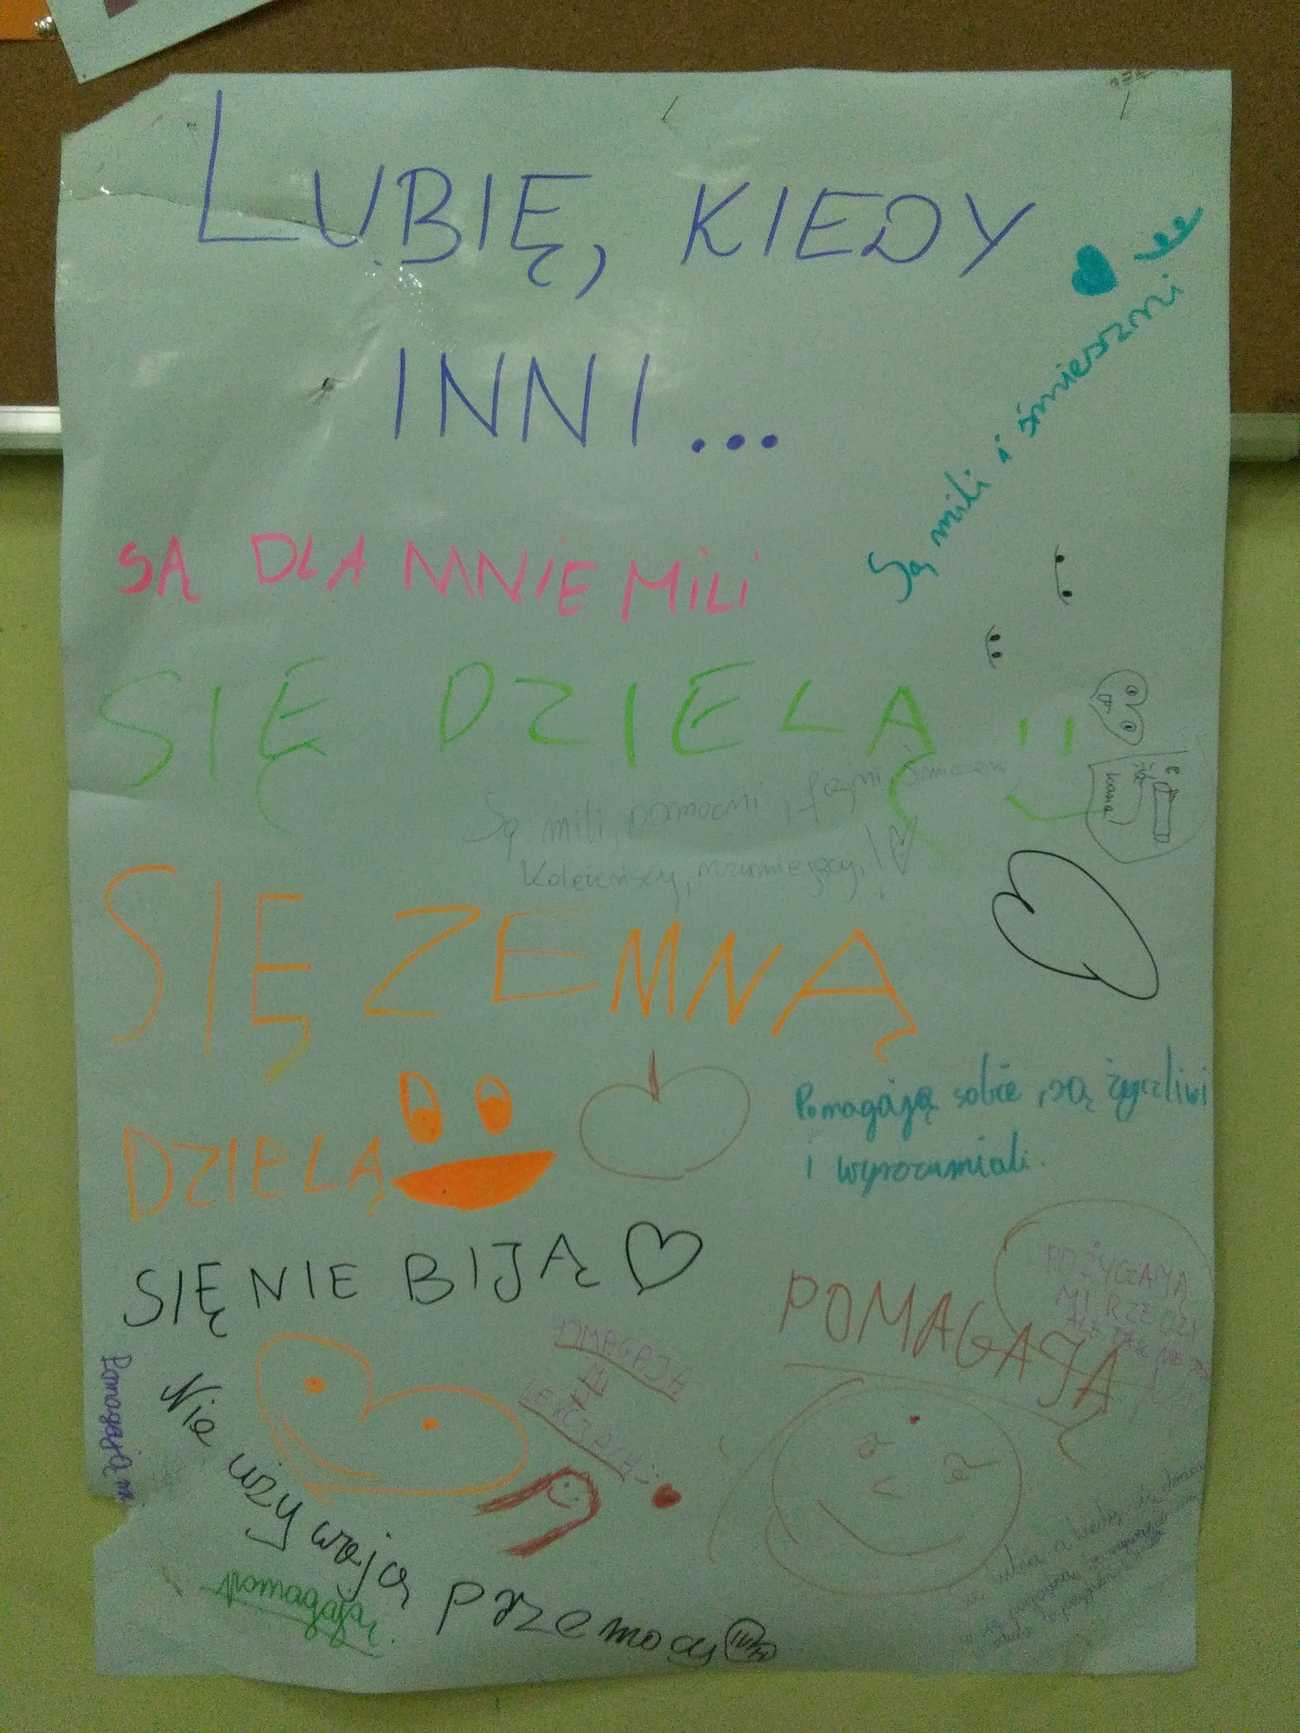 LUBIĘ, KIEDY
INNI...
Są mili i śmieszni
SĄ DLA MNIE MILI
SIĘ DZIELĄ
Są mili, pomocni, fajni,
Koleżeńscy,
SIĘ ZEMNĄ
DZIELĄ
Pomagają sobie, są życzliwi
i wyrozumiali.
SIĘ NIE BIJĄ
POŻYCZAJĄ
MI RZECZY
POMAGAJĄ
Pomagają mi
Nie używają przemocy
pomagają.